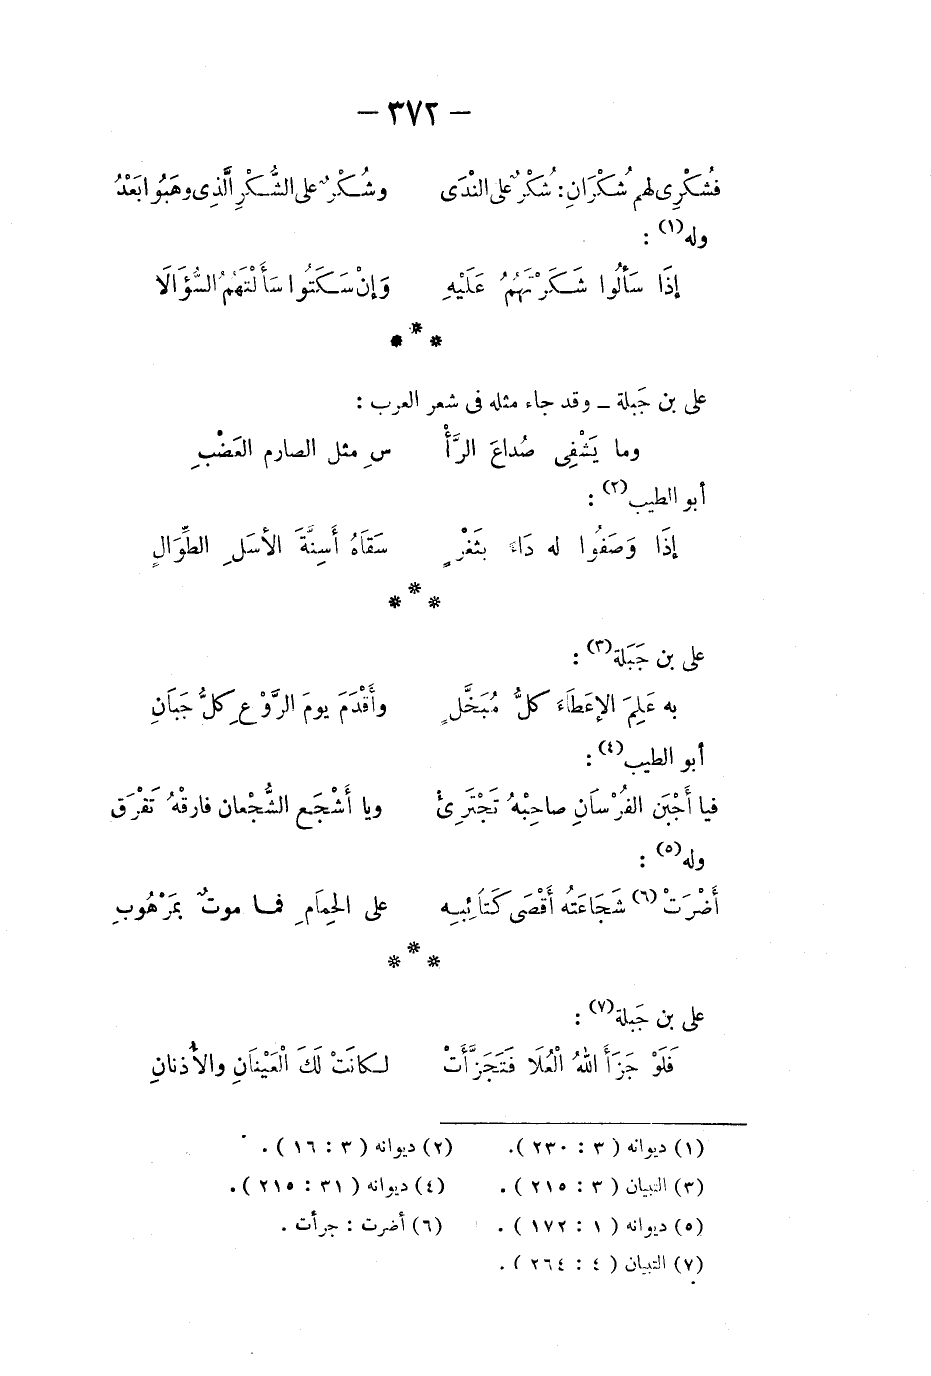 — ٣٧٢ —
فشُكْرِى لهم شُكْرَانِ : شُكْرٌ على النْدَى وشُكْرٌ على الشُّكْرِ الَّذِى وهَبُوا بَعْدُ
وله(١) :
إِذَا سَأَلُوا شَكَرْتَهُمُ عَلَيْهِ وَإِنْ سَكَتُوا سَأَلْتَهُمُ السُّؤَالَا
* * *
على بن جَبلة – وقد جاء مثله فى شعر العرب :
وما يَشْفِى صُداعَ الرَّأْ سِ مثل الصارم العَضْبِ
أبو الطيب(٢) :
إِذَا وَصَفُوا له دَاءَ بثَغْرٍ سَقَاهُ أَسِنَّةَ الأسَلِ الطِّوَالِ
* * *
على بن جَبَلة(٣) :
به عَلِمَ الإعَطَاءَ كلُّ مُبَخَّلٍ وأَقْدَمَ يومَ الرَّوْعِ كلُّ جَبَانِ
أبو الطيب(٤) :
فيا أَجْبَن الفُرْسَانِ صاحِبْهُ تَجْتَرِئْ ويا أَشْجَع الشُّجْعان فارِقْهُ تَفْرَق
وله(٥) :
أَضْرَتْ(٦) شَجَاعَتُه أَقْصَى كَتَائِبِه على الحِمَامِ فما موتٌ بمَرْهُوبِ
* * *
على بن جَبلة(٧) :
فَلَوْ جَزَأَ اللهُ الْعُلَا فَتَجَزَّأَتْ لكانَتْ لَكَ الْعَيْنَانِ والأُذنانِ
(١) ديوانه ( ٣ : ٢٣٠ ). (٢) ديوانه ( ٣ : ١٦ ) .
(٣) التبيان ( ٣ : ٢١٥ ) . (٤) ديوانه ( ٣١ : ٢١٥ ) .
(٥) ديوانه ( ١ : ١٧٢ ) . (٦) أضرت : جرأت .
(٧) التبيان ( ٤ : ٢٦٤ ) .